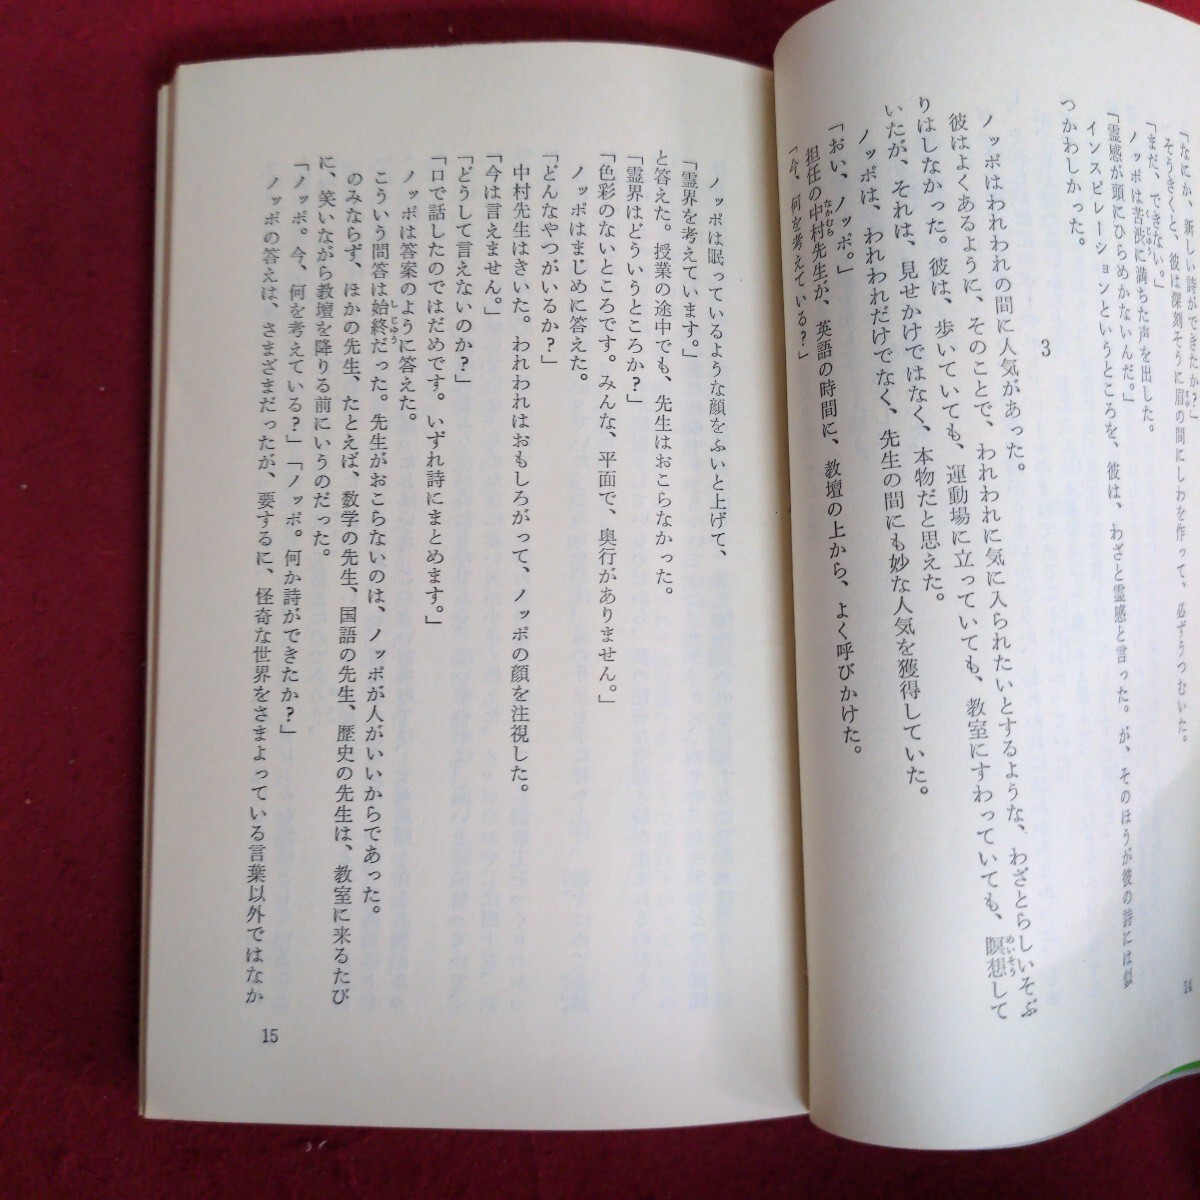 「なにか、新しい詩ができたか?」
そうきくと、彼は深刻そうに眉の間にしわを作って、必ずうつむいた。
「まだ、できない。」
ノッポは苦渋に満ちた声を出した。
「霊感が頭にひらめかないんだ。」
インスピレーションというところを、彼は、わざと霊感と言った。が、そのほうが彼の詩には似
つかわしかった。
3
ノッポはわれわれの間に人気があった。
彼はよくあるように、そのことで、われわれに気に入られたいとするような、わざとらしいそぶ
りはしなかった。彼は、歩いていても、運動場に立っていても、教室にすわっていても、瞑想して
いたが、それは、見せかけではなく、本物だと思えた。
ノッポは、われわれだけでなく、先生の間にも妙な人気を獲得していた。
「おい、ノッポ。」
担任の中村先生が、英語の時間に、教壇の上から、よく呼びかけた。
「今、何を考えている?」
14
ノッポは眠っているような顔をふいと上げて、
「霊界を考えています。」
と答えた。授業の途中でも、先生はおこらなかった。
「霊界はどういうところか?」
「色彩のないところです。みんな、平面で、奥行がありません。」
ノッポはまじめに答えた。
「どんなやつがいるか?」
中村先生はきいた。われわれはおもしろがって、ノッポの顔を注視した。
「今は言えません。」
「どうして言えないのか?」
「口で話したのではだめです。いずれ詩にまとめます。」
ノッポは答案のように答えた。
こういう問答は始終だった。先生がおこらないのは、ノッポが人がいいからであった。
のみならず、ほかの先生、たとえば、数学の先生、国語の先生、歴史の先生は、教室に来るたび
に、笑いながら教壇を降りる前にいうのだった。
「ノッポ。今、何を考えている?」「ノッポ。何か詩ができたか?」
ノッポの答えは、さまざまだったが、要するに、怪奇な世界をさまよっている言葉以外ではなか
15